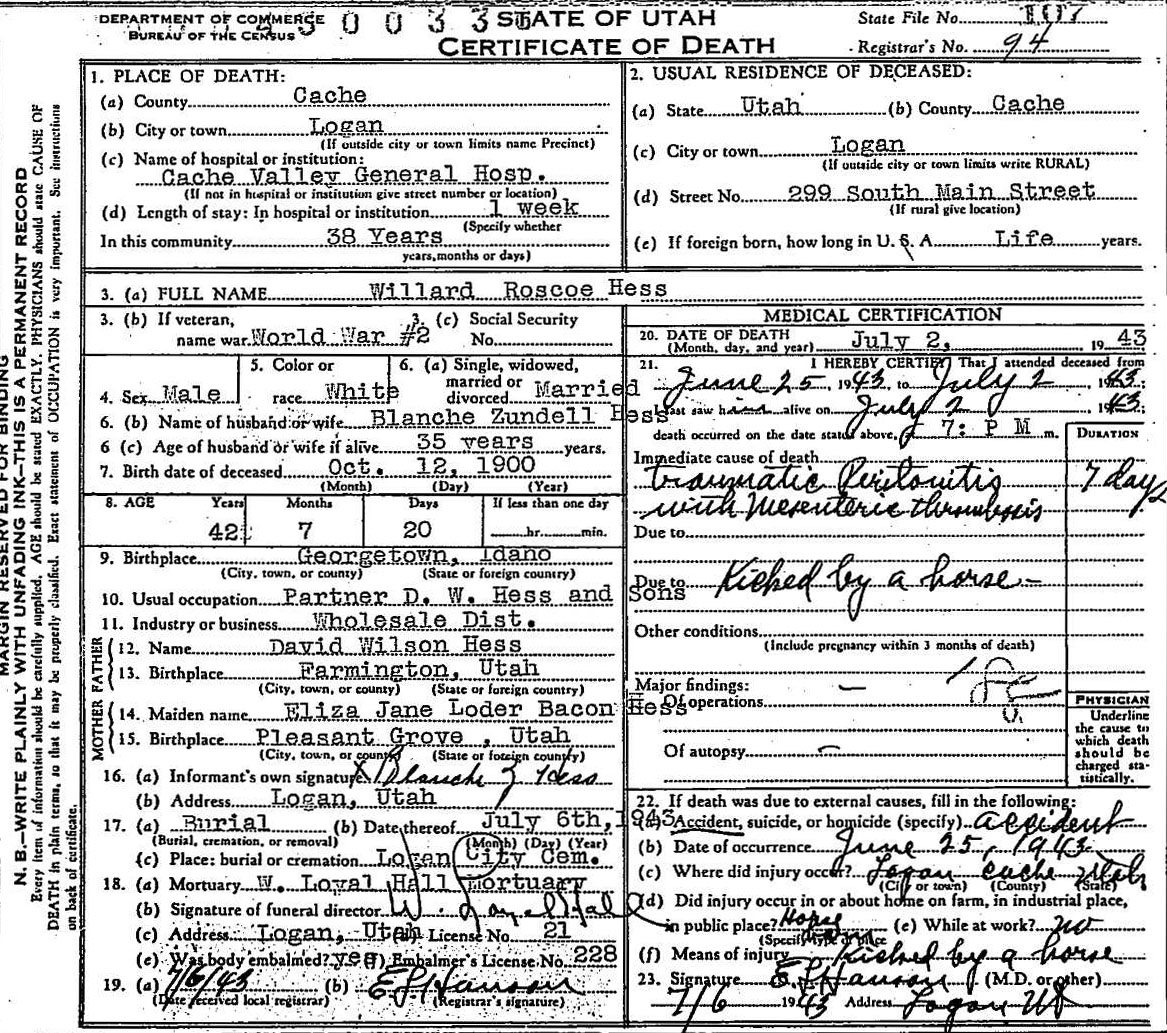 DEPARTMENT OF COMMERCE
BUREAU OF THE CENSUS
STATE OF UTAH
CERTIFICATE OF DEATH
State File No.
Registrar's No. 94
MARGIN RESERVED FOR BINDING
N. B.—WRITE PLAINLY WITH UNFADING INK—THIS IS A PERMANENT RECORD
Every item of information should be carefully supplied. AGE should be stated EXACTLY. PHYSICIANS should state CAUSE OF
DEATH in plain terms, so that it may be properly classified. Exact statement of OCCUPATION is very important. See instructions
on back of certificate.
1. PLACE OF DEATH:
(a) County Cache
(b) City or town Logan
(If outside city or town limits name Precinct)
(c) Name of hospital or institution:
Cache Valley General Hosp.
(If not in hospital or institution give street number or location)
(d) Length of stay: In hospital or institution 1 week
(Specify whether
In this community 38 Years
years, months or days)
2. USUAL RESIDENCE OF DECEASED:
(a) State Utah (b) County Cache
(c) City or town Logan
(If outside city or town limits write RURAL)
(d) Street No. 299 South Main Street
(If rural give location)
(e) If foreign born, how long in U. S. A. Life years.
3. (a) FULL NAME Willard Roscoe Hess
3. (b) If veteran, name war World War #2
3. (c) Social Security No.
4. Sex Male
5. Color or race White
6. (a) Single, widowed, married or divorced Married
6. (b) Name of husband or wife Blanche Zundell Hess
6 (c) Age of husband or wife if alive 35 years years.
7. Birth date of deceased Oct. 12, 1900
(Month) (Day) (Year)
8. AGE Years Months Days If less than one day
42 7 20 hr. min.
9. Birthplace Georgetown, Idaho
(City, town, or county) (State or foreign country)
10. Usual occupation Partner D. W. Hess and Sons
11. Industry or business Wholesale Dist.
FATHER
12. Name David Wilson Hess
13. Birthplace Farmington, Utah
(City, town, or county) (State or foreign country)
MOTHER
14. Maiden name Eliza Jane Loder Bacon Hess
15. Birthplace Pleasant Grove, Utah
(City, town, or county) (State or foreign country)
16. (a) Informant's own signature X Blanche Z Hess
(b) Address Logan, Utah
17. (a) Burial (b) Date thereof July 6th, 1943
(Burial, cremation, or removal) (Month) (Day) (Year)
(c) Place: burial or cremation Logan City Cem.
18. (a) Mortuary W. Loyal Hall Mortuary
(b) Signature of funeral director W. Loyal Hall
(c) Address Logan, Utah (d) License No. 21
(e) Was body embalmed? yes (f) Embalmer's License No. 228
19. (a) 7/6/43 (b) E L Hanson
(Date received local registrar) (Registrar's signature)
MEDICAL CERTIFICATION
20. DATE OF DEATH July 2, 1943
(Month, day, and year)
21. I HEREBY CERTIFY That I attended deceased from
June 25, 1943, to July 2, 1943;
I last saw him alive on July 2 1943;
death occurred on the date stated above, 7: P M m.
DURATION
Immediate cause of death
traumatic Peritonitis 7 days
with Mesenteric thrombosis
Due to
Due to Kicked by a horse -
Other conditions
(Include pregnancy within 3 months of death)
Major findings:
Of operations
Of autopsy -
PHYSICIAN
Underline
the cause to
which death
should be
charged sta-
tistically.
22. If death was due to external causes, fill in the following:
(a) Accident, suicide, or homicide (specify) accident
(b) Date of occurrence June 25, 1943
(c) Where did injury occur? Logan Cache Utah
(City or town) (County) (State)
(d) Did injury occur in or about home on farm, in industrial place,
in public place? (e) While at work? no
(Specify type of place)
(f) Means of injury Kicked by a horse
23. Signature E L Hanson (M.D. or other)
7/6 1943 Address Logan Ut